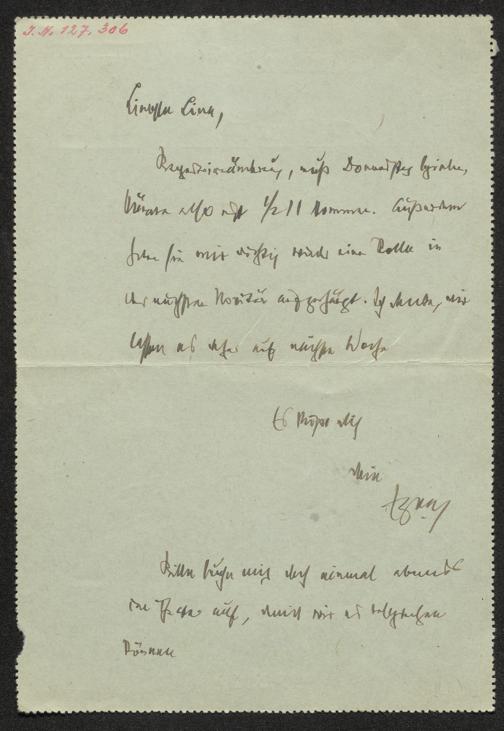 I.N. 127.306
Liebste Lina,
Repertoireänderung, muß Donnerstag spielen,
könnte also erst 1/2 11 kommen. Außerdem
haben sie mir richtig wieder eine Rolle in
der nächsten Novität aufgehängt. Ich denke, wir
lassen es eher auf nächste Woche
Es küßt dich
dein
Egon
Bitte suche mich doch einmal abends
im Theater auf, damit wir es besprechen
können